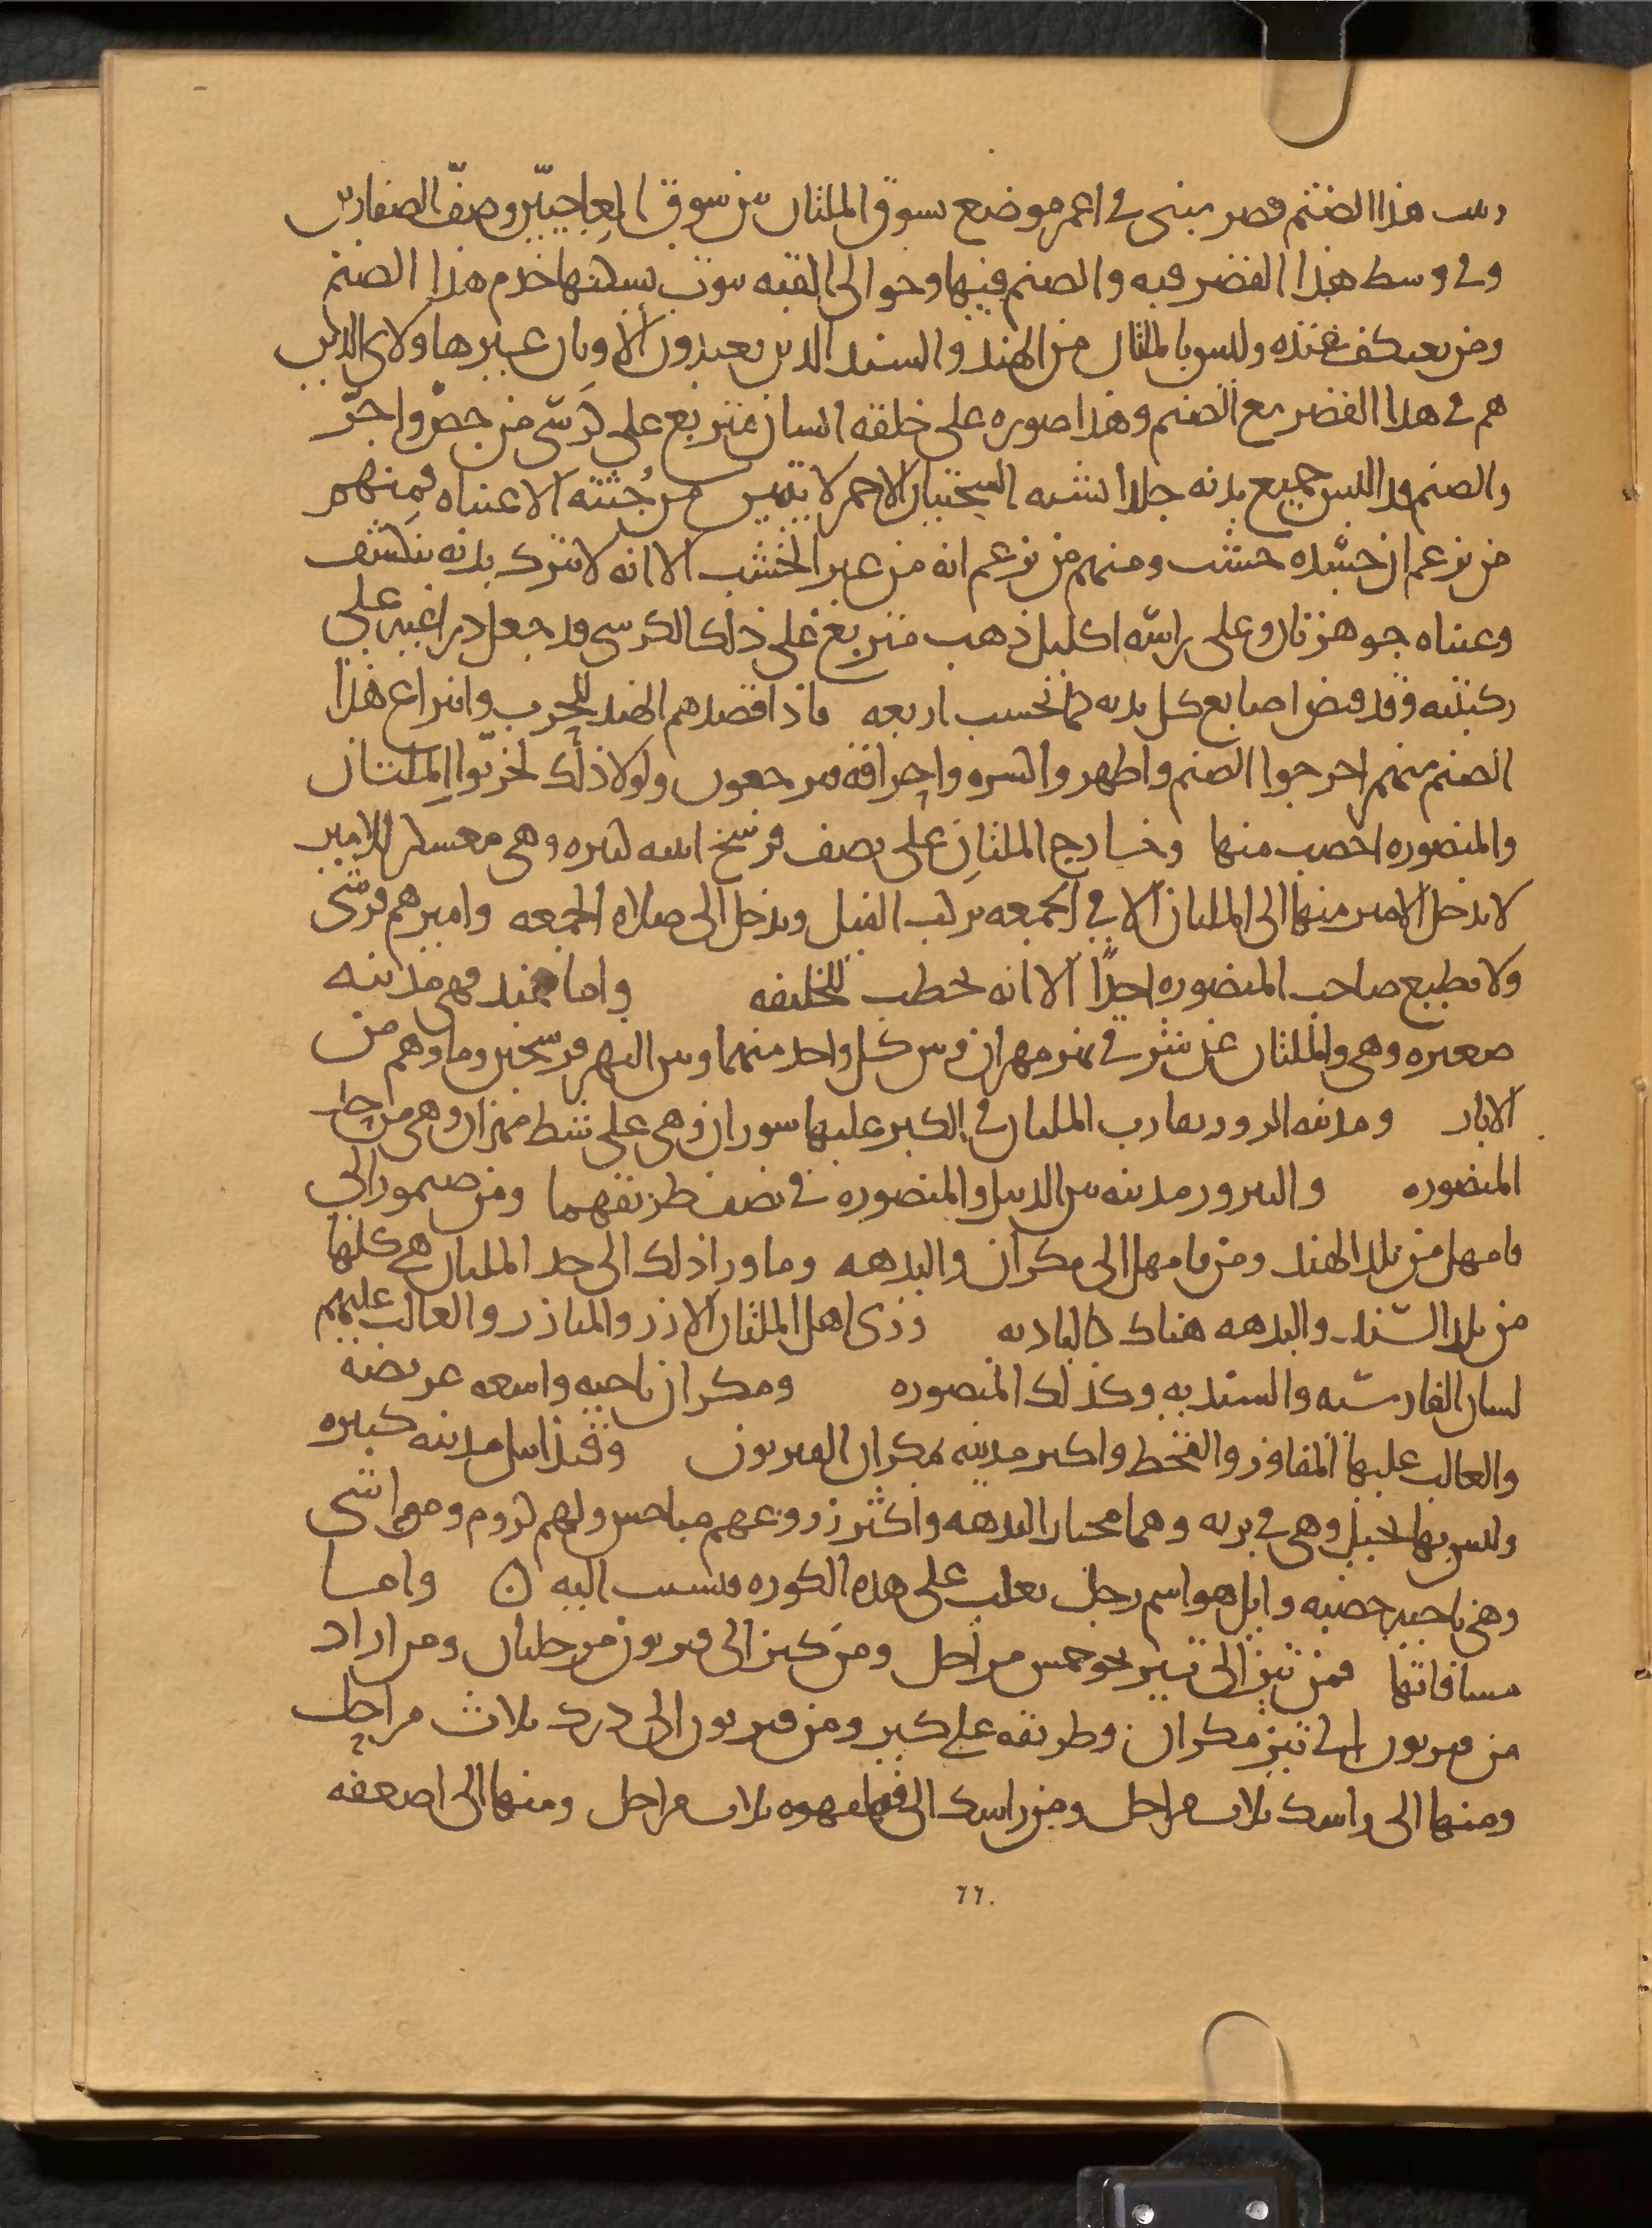 وبيت هذا الصنم قصر مبنى فى اعمر موضع بسوق الملتان بين سوق العاجيين وصف الصفارين
وفى وسط هذا القصر قبه والصنم فيها وحوالى القبه بيوت يسكنها خدم هذا الصنم
ومن يعتكف عنده وليس بالملتان من الهند والسند الذين يعبدون الاوثان غيرها ولاى الذين
هم فى هذا القصر مع الصنم وهذا صوره على خلقه انسان متربع على كرسى من جص واجر
والصنم قد البس جميع بدنه جلدا يشبه السختيان الاحمر لا يتبين من جثته الا عيناه فمنهم
من يزعم ان جسده خشب ومنهم من يزعم انه من غير الخشب الا انه لا يترك بدنه ينكشف
وعيناه جوهرتان وعلى راسه اكليل ذهب متربع على ذلك الكرسى قد جعل ذراعيه على
ركبتيه وقد قبض اصابع كل يديه كما تحسب اربعه فاذا قصدهم الهند للحرب وانتزاع هذا
الصنم منهم اخرجوا الصنم واظهروا كسره واحراقه فيرجعون ولولا ذلك لخربوا الملتان
والمنصوره اخصب منها وخارج الملتان على نصف فرسخ ابنيه كثيره وهى معسكر للامير
لا يدخل الامير منها الى الملتان الا فى الجمعه يركب الفيل ويدخل الى صلاه الجمعه واميرهم قرشى
ولا يطيع صاحب المنصوره احدا الا انه يخطب للخليفه واما فهى مدينه
صغيره وهى والملتان عن نهر مهران بين كل واحد منهما وبين النهر فرسخين وماوهم من
الابار ومدينه الرور تقارب الملتان فى الكبر عليها سوران وهى على شط مهران وهى من حد
المنصوره والنيرور مدينه بين الديبل والمنصوره فى نصف طريقهما ومن صيمور الى
فامهل من بلد الهند ومن فامهل الى مكران والبدهه وما ورا ذلك الى حد الملتان هى كلها
من بلد السند والبدهه هناك كالباديه وزى اهل الملتان الازر والميازر والغالب عليهم
لسان الفارسيه والسنديه وكذلك المنصوره ومكران ناحيه واسعه عريضة
والغالب عليها المفاوز والقحط واكبر مدينه بمكران القيربون وقندابيل مدينه كبيره
وليس بها نخيل وهى فى بريه وهما البدهه واكثر زروعهم مباخس ولهم كروم ومواشى
وهى ناحيه خصبه وايل هو اسم رجل تغلب على هذه الكوره فنسبت اليه ن واما
مسافاتها فمن تيز الى نحو خمس مراحل ومن كيز الى قيربون مرحلتان ومن اراد
من قيربون الى تيز مكران وطريقه على كيز ومن قيربون الى درك ثلاث مراحل
ومنها الى راسك ثلاث مراحل ومن راسك الى فهلفهره ثلاث مراحل ومنها الى اصعفه